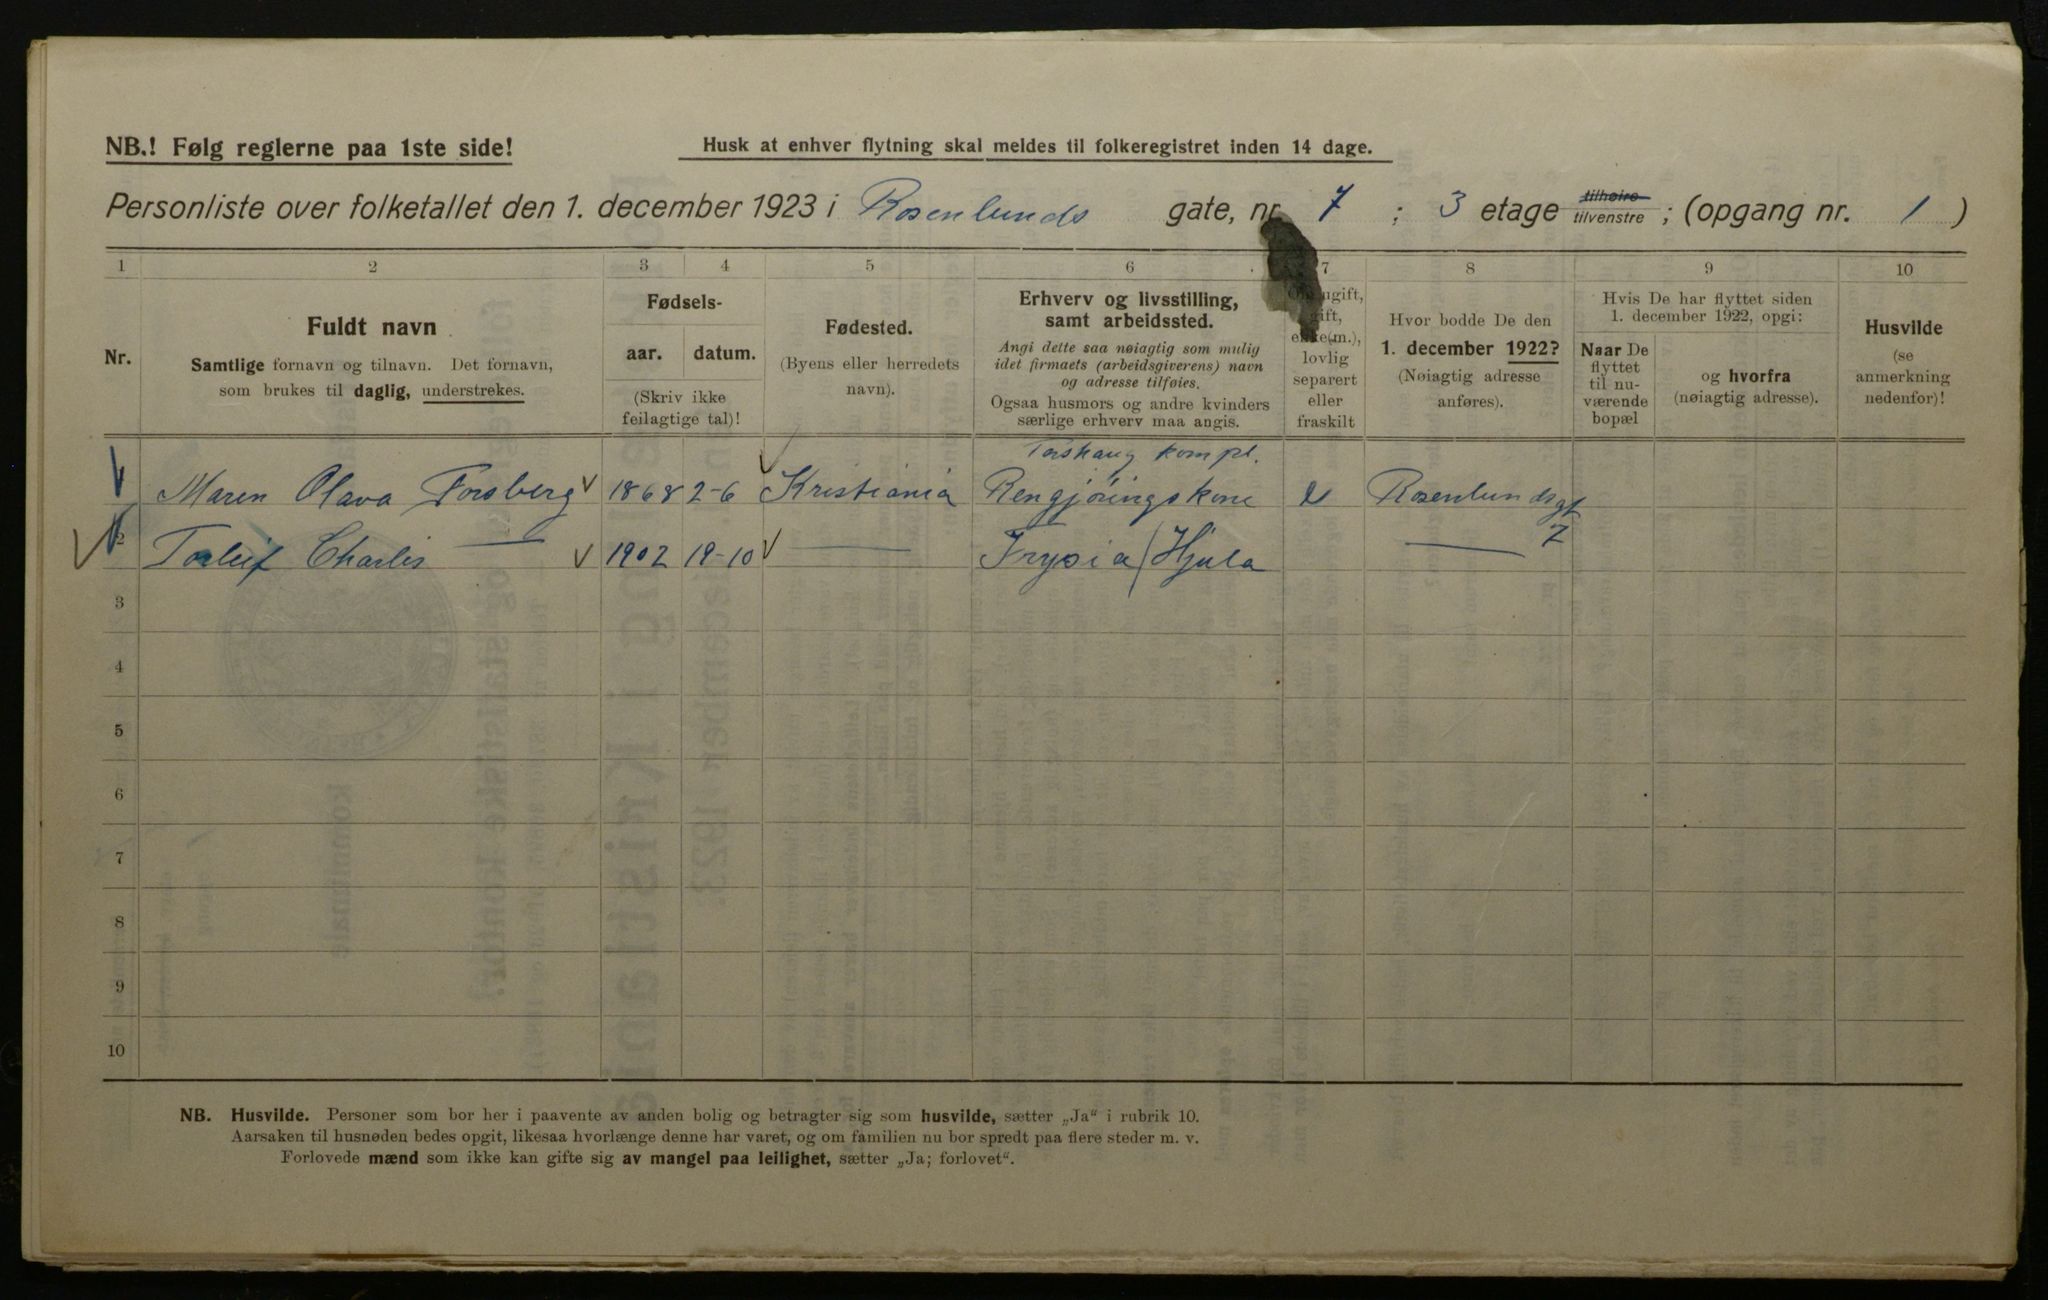 NB.! Følg reglerne paa 1ste side!
Husk at enhver flytning skal meldes til folkeregistret inden 14 dage.
Personliste over folketallet den 1. december 1923 i Rosenlunds gate, nr. 7 ; 3 etage tilhøire tilvenstre ; (opgang nr. 1 )
1 2 3 4 5 6 7 8 9 10
Nr.
Fuldt navn
Samtlige fornavn og tilnavn. Det fornavn,
som brukes til daglig, understrekes.
Fødsels-
aar. datum.
(Skriv ikke
feilagtige tal)!
Fødested.
(Byens eller herredets
navn).
Erhverv og livsstilling,
samt arbeidssted.
Angi dette saa nøiagtig som mulig
idet firmaets (arbeidsgiverens) navn
og adresse tilføies.
Ogsaa husmors og andre kvinders
særlige erhverv maa angis.
ugift,
gift,
enke(m.),
lovlig
separert
eller
fraskilt
Hvor bodde De den
1. december 1922?
(Nøiagtig adresse
anføres).
Hvis De har flyttet siden
1. december 1922, opgi:
Naar De
flyttet
til nu-
værende
bopæl
og hvorfra
(nøiagtig adresse).
Husvilde
(se
anmerkning
nedenfor)!
Torshaug kompl.
Maren Olava Forsberg 1868 2-6 Kristiania Rengjöringskone e Rosenlundsgt
7
2 Torleif Charles — 1902 19-10 — Frysia/Hjula —
3
4
5
6
7
8
9
10
NB. Husvilde. Personer som bor her i paavente av anden bolig og betragter sig som husvilde, sætter „Ja“ i rubrik 10.
Aarsaken til husnøden bedes opgit, likesaa hvorlænge denne har varet, og om familien nu bor spredt paa flere steder m. v.
Forlovede mænd som ikke kan gifte sig av mangel paa leilighet, sætter „Ja; forlovet“.